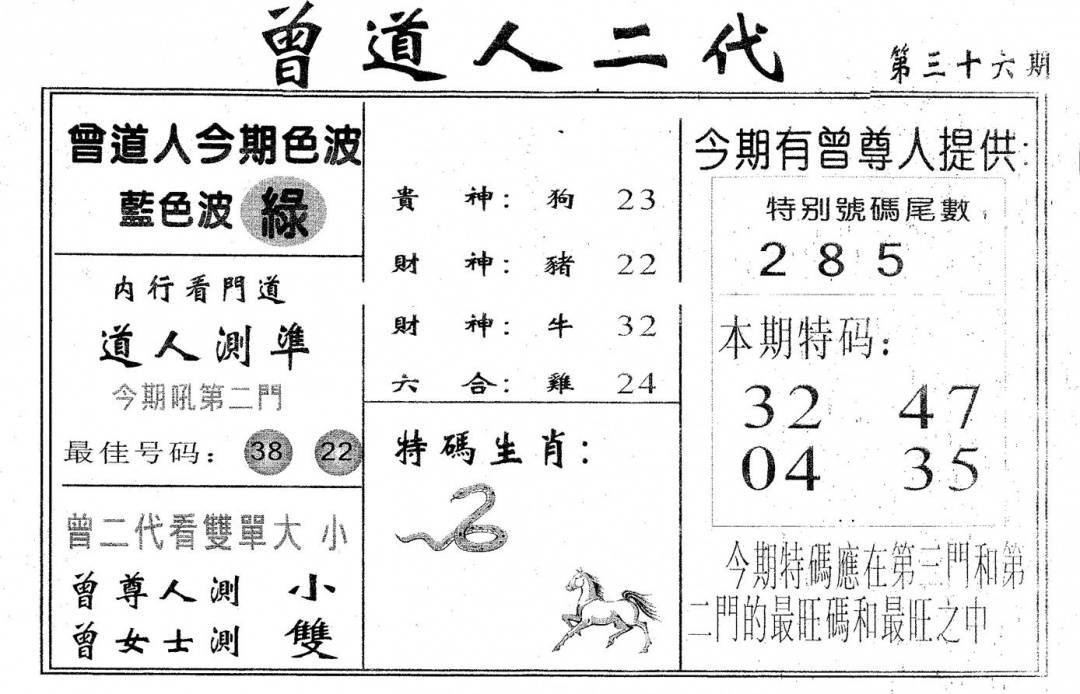 曾道人二代
第三十六期
曾道人今期色波
藍色波 綠
内行看門道
道人測準
今期吼第二門
最佳号码： 38 22
曾二代看雙單大 小
曾尊人測 小
曾女士測 雙
貴 神： 狗 23
財 神： 豬 22
財 神： 牛 32
六 合： 雞 24
特碼生肖：
今期有曾尊人提供：
特别號碼尾數
2 8 5
本期特码：
32 47
04 35
今期特碼應在第三門和第
二門的最旺碼和最旺之中